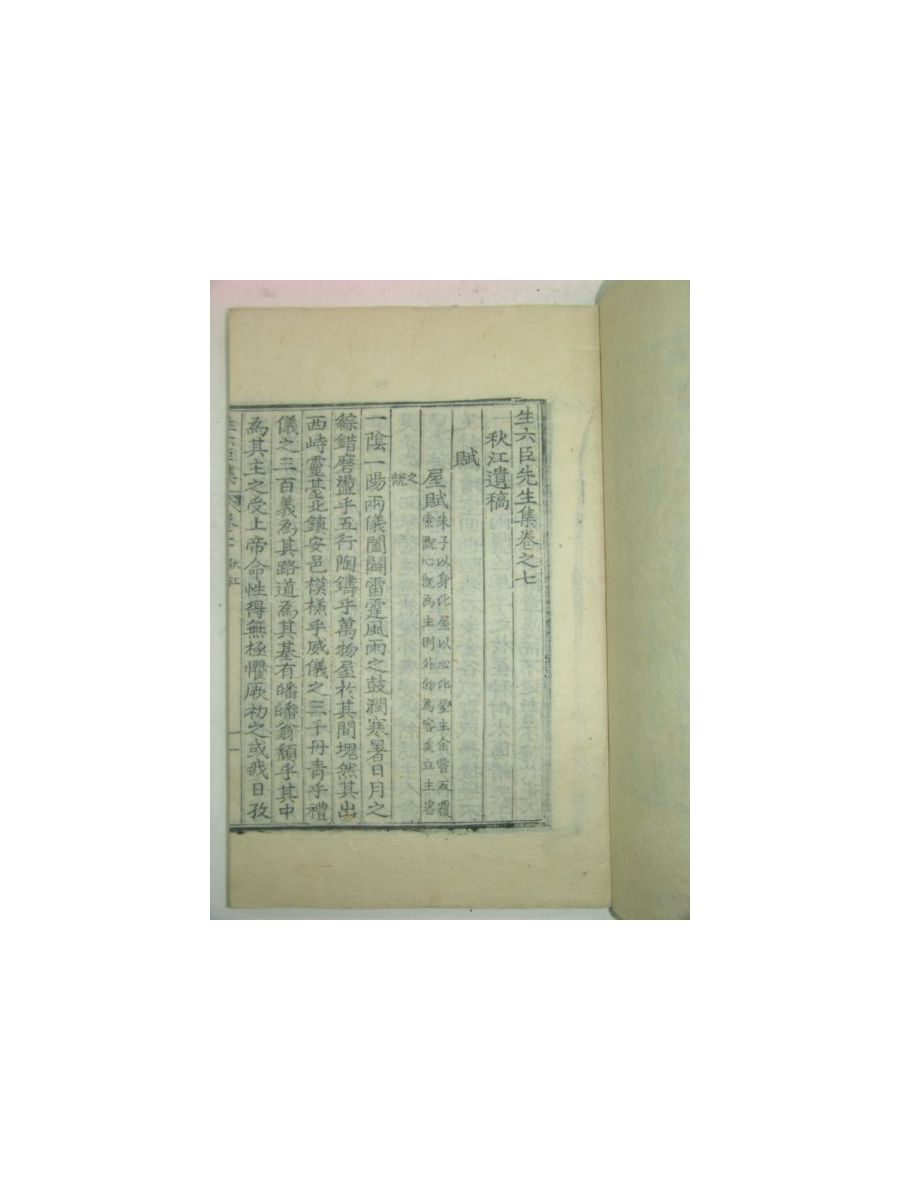 生六臣先生集卷之七
秋江遺稿
賦
屋賦 朱子以身比屋以心比屋主余嘗反覆
索觀心旣為主則外物為客矣立主客
之說
一陰一陽兩儀闔闢雷霆風雨之鼓潤寒暑日月之
綜錯磨盪乎五行陶鑄乎萬物屋於其間塊然其出
西峙靈臺北鎮安邑模樣乎威儀之三千丹青乎禮
儀之三百義為其路道為其基有皤皤翁頹乎其中
為其主之受上帝命性得無極懼厥初之或戕日孜
生六臣集 卷之七 秋江 一